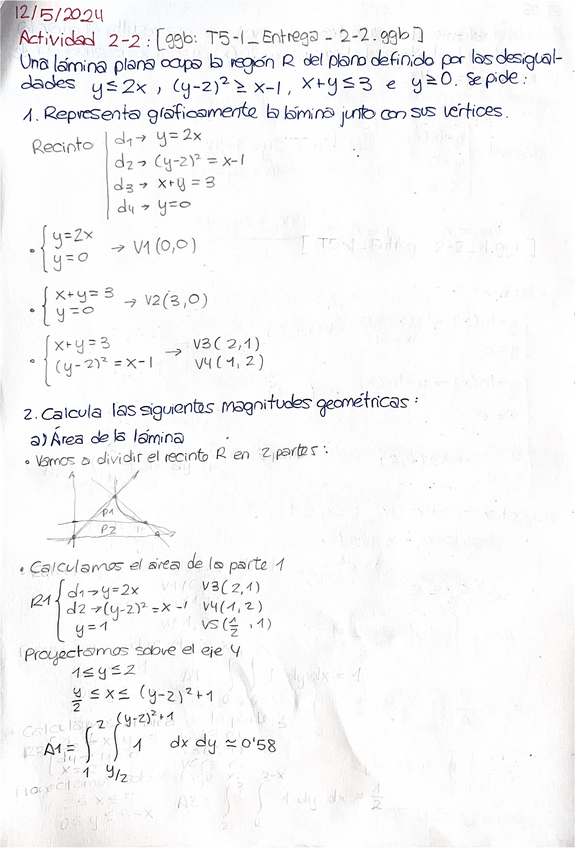 12/5/2024
Actividad 2-2: [ggb: T5-1_Entrega_2-2.ggb]
Una lámina plana ocupa la región R del plano definido por las desigual-
dades y≤2x, (y-2)² ≥ x-1, x+y≤3 e y≥0. Se pide:
1. Representa gráficamente la lámina junto con sus vértices.
Recinto d1→ y=2x
d2→ (y-2)² = x-1
d3→ x+y=3
d4→ y=0
• { y=2x
y=0 → V1(0,0)
• { x+y=3
y=0 → V2(3,0)
• { x+y=3
(y-2)²=x-1 → V3(2,1)
V4(1,2)
2. Calcula las siguientes magnitudes geométricas:
a) Área de la lámina
• Vamos a dividir el recinto R en 2 partes:
P1
P2
• Calculamos el área de la parte 1
R1 { d1→y=2x V3(2,1)
d2→(y-2)²=x-1 V4(1,2)
y=1 V5(1/2, 1)
Proyectamos sobre el eje Y
1≤y≤2
y/2 ≤ x ≤ (y-2)²+1
A1 = ∫₁² ∫_{y/2}^{(y-2)²+1} 1 dx dy ≃ 0'58